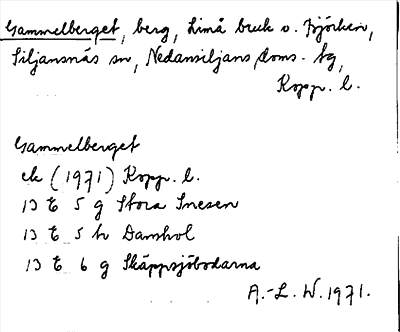 Gammelberget, berg, Limå bruk o. Björken,
Siljansnäs sn, Nedansiljans doms. tg,
Kopp. l.
Gammelberget
ek (1971) Kopp. l.
13 E 5 g Stora Snesen
13 E 5 h Damhol
13 E 6 g Skäppsjöbodarna
A.-L. W. 1971.